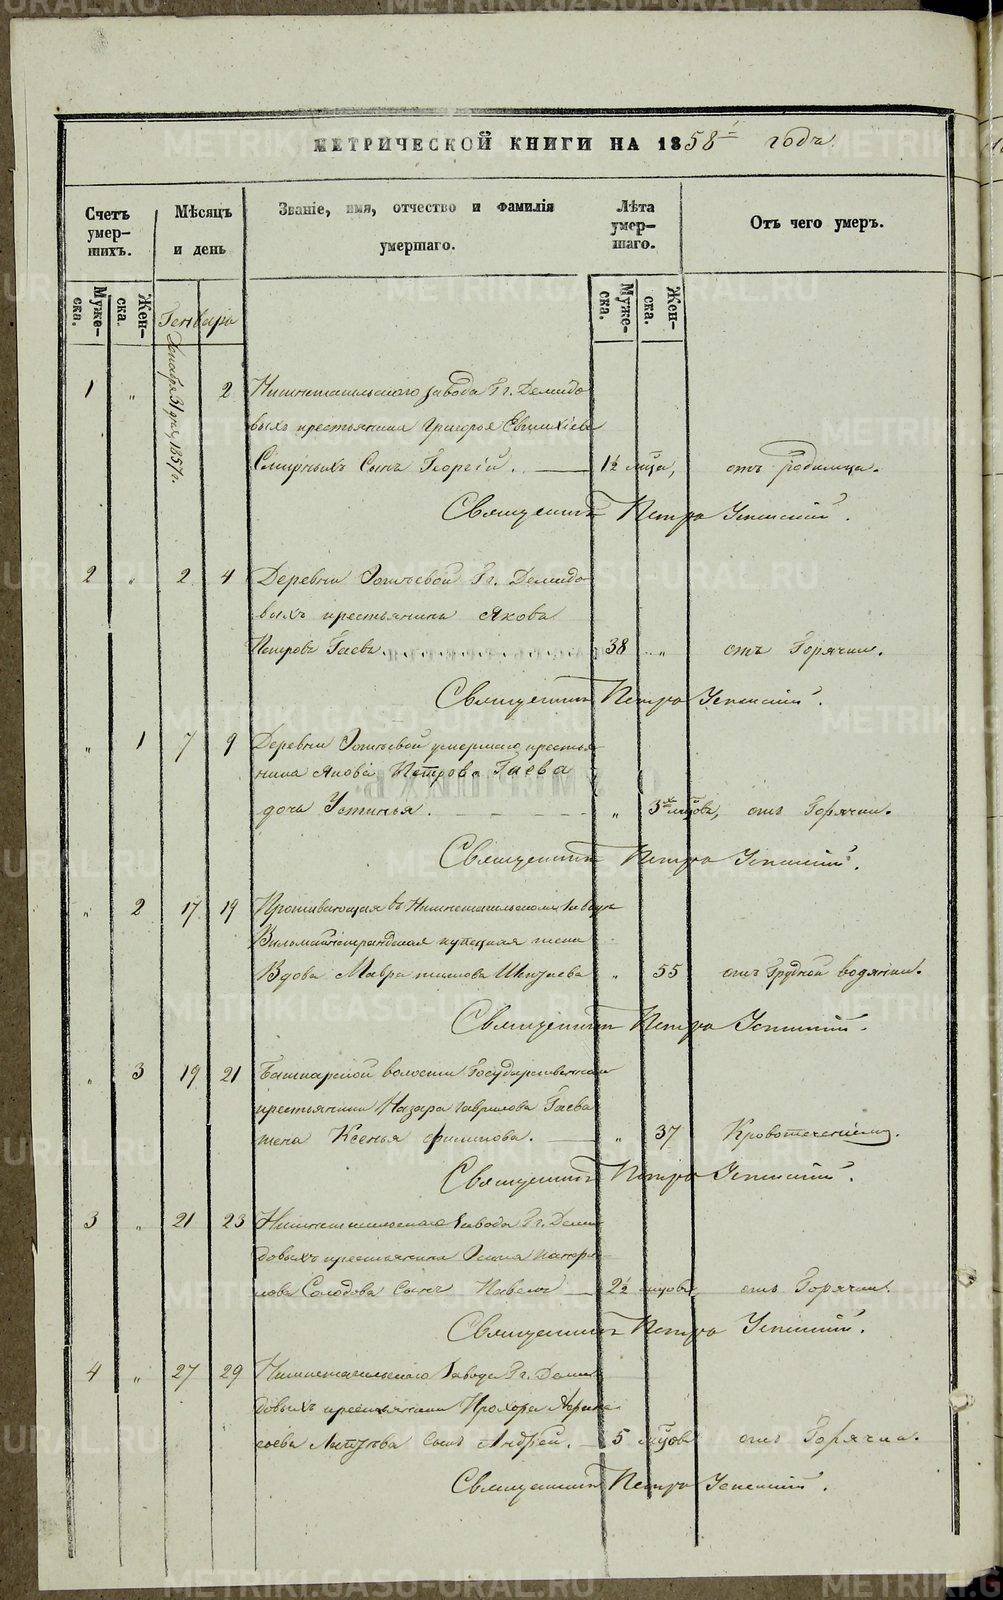 МЕТРИЧЕСКОЙ КНИГИ НА 1858й годъ.
Счетъ умер-шихъ.
Мѣсяцъ и день
Званіе, имя, отчество и фамилія умершаго.
Лѣта умер-шаго.
Отъ чего умеръ.
Муже-ска.
Жен-ска.
Генваря
Муже-ска.
Жен-ска.
Декабря 31 дня, 1857 г.
1 „ 2 Нижнетагильскаго завода Гг. Демидо
выхъ крестьянина Григорья Евтихіева
Смирныхъ сынъ Георгій. 1½ мѣсяца, отъ родимца.
Священникъ Петръ Успенскій.
2 „ 2 4 Деревни Гг. Демидо
выхъ крестьянинъ Яковъ
Петровъ Гаевъ 38 „ отъ Горячки.
Священникъ Петръ Успенскій.
„ 1 7 9 Деревни умершаго крестья
нина Якова Петрова Гаева
дочь Устинья. „ 3хъ мѣсяцовъ, отъ Горячки.
Священникъ Петръ Успенскій.
„ 2 17 19 Проживающая въ Нижнетагильскомъ заводѣ
купецкая жена
Вдова Мавра „ 55 отъ Грудной водянки.
Священникъ Петръ Успенскій.
„ 3 19 21 Башкарской волости Государственнаго
крестьянина Назара Гаврилова Гаева
жена Ксенья Филипова. „ 37 Кровотеченіемъ.
Священникъ Петръ Успенскій.
3 „ 21 23 Нижнетагильскаго завода Гг. Деми
довыхъ крестьянина
Солодова сынъ Павелъ 2½ мѣсяцовъ, отъ Горячки.
Священникъ Петръ Успенскій.
4 „ 27 29 Нижнетагильскаго завода Гг. Деми
довыхъ крестьянина Прохора
сынъ Андрей. 5 мѣсяцовъ отъ Горячки.
Священникъ Петръ Успенскій.
METRIKI.GASO-URAL.RU